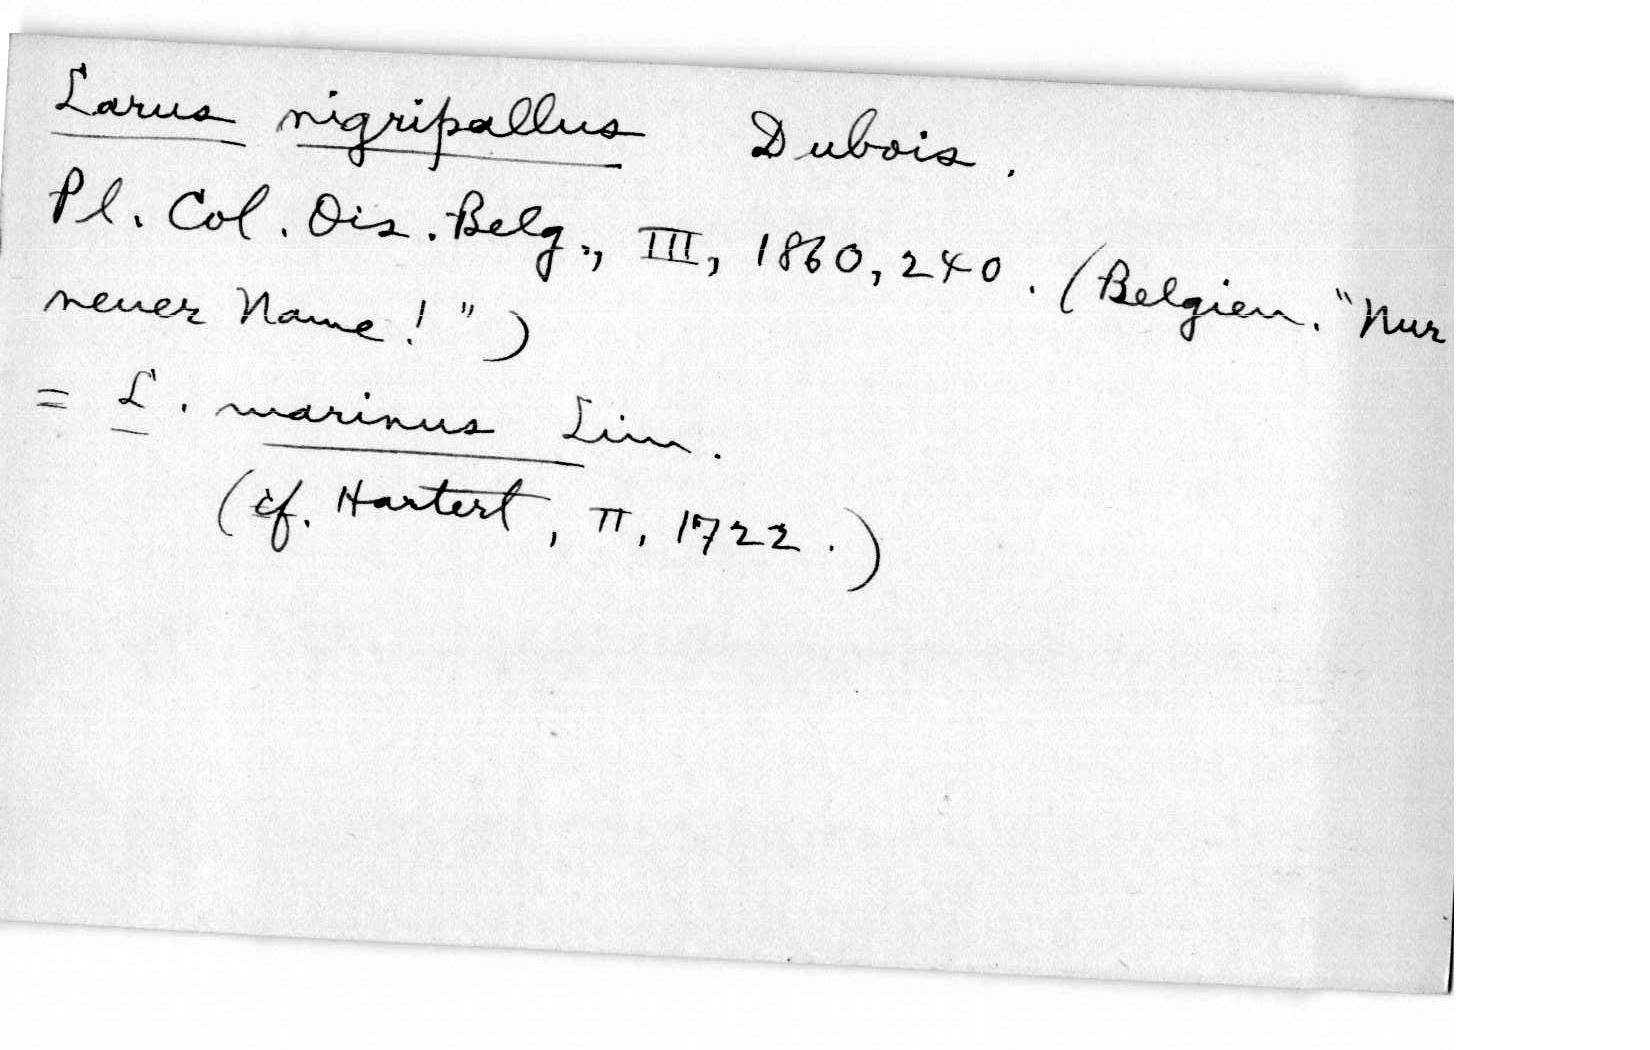 Larus nigripallus Dubois.
Pl. Col. Ois. Belg., III, 1860, 240. (Belgien. "Nur
neuer Name!")
= L. marinus Linn.
(cf. Hartert, II, 1722.)